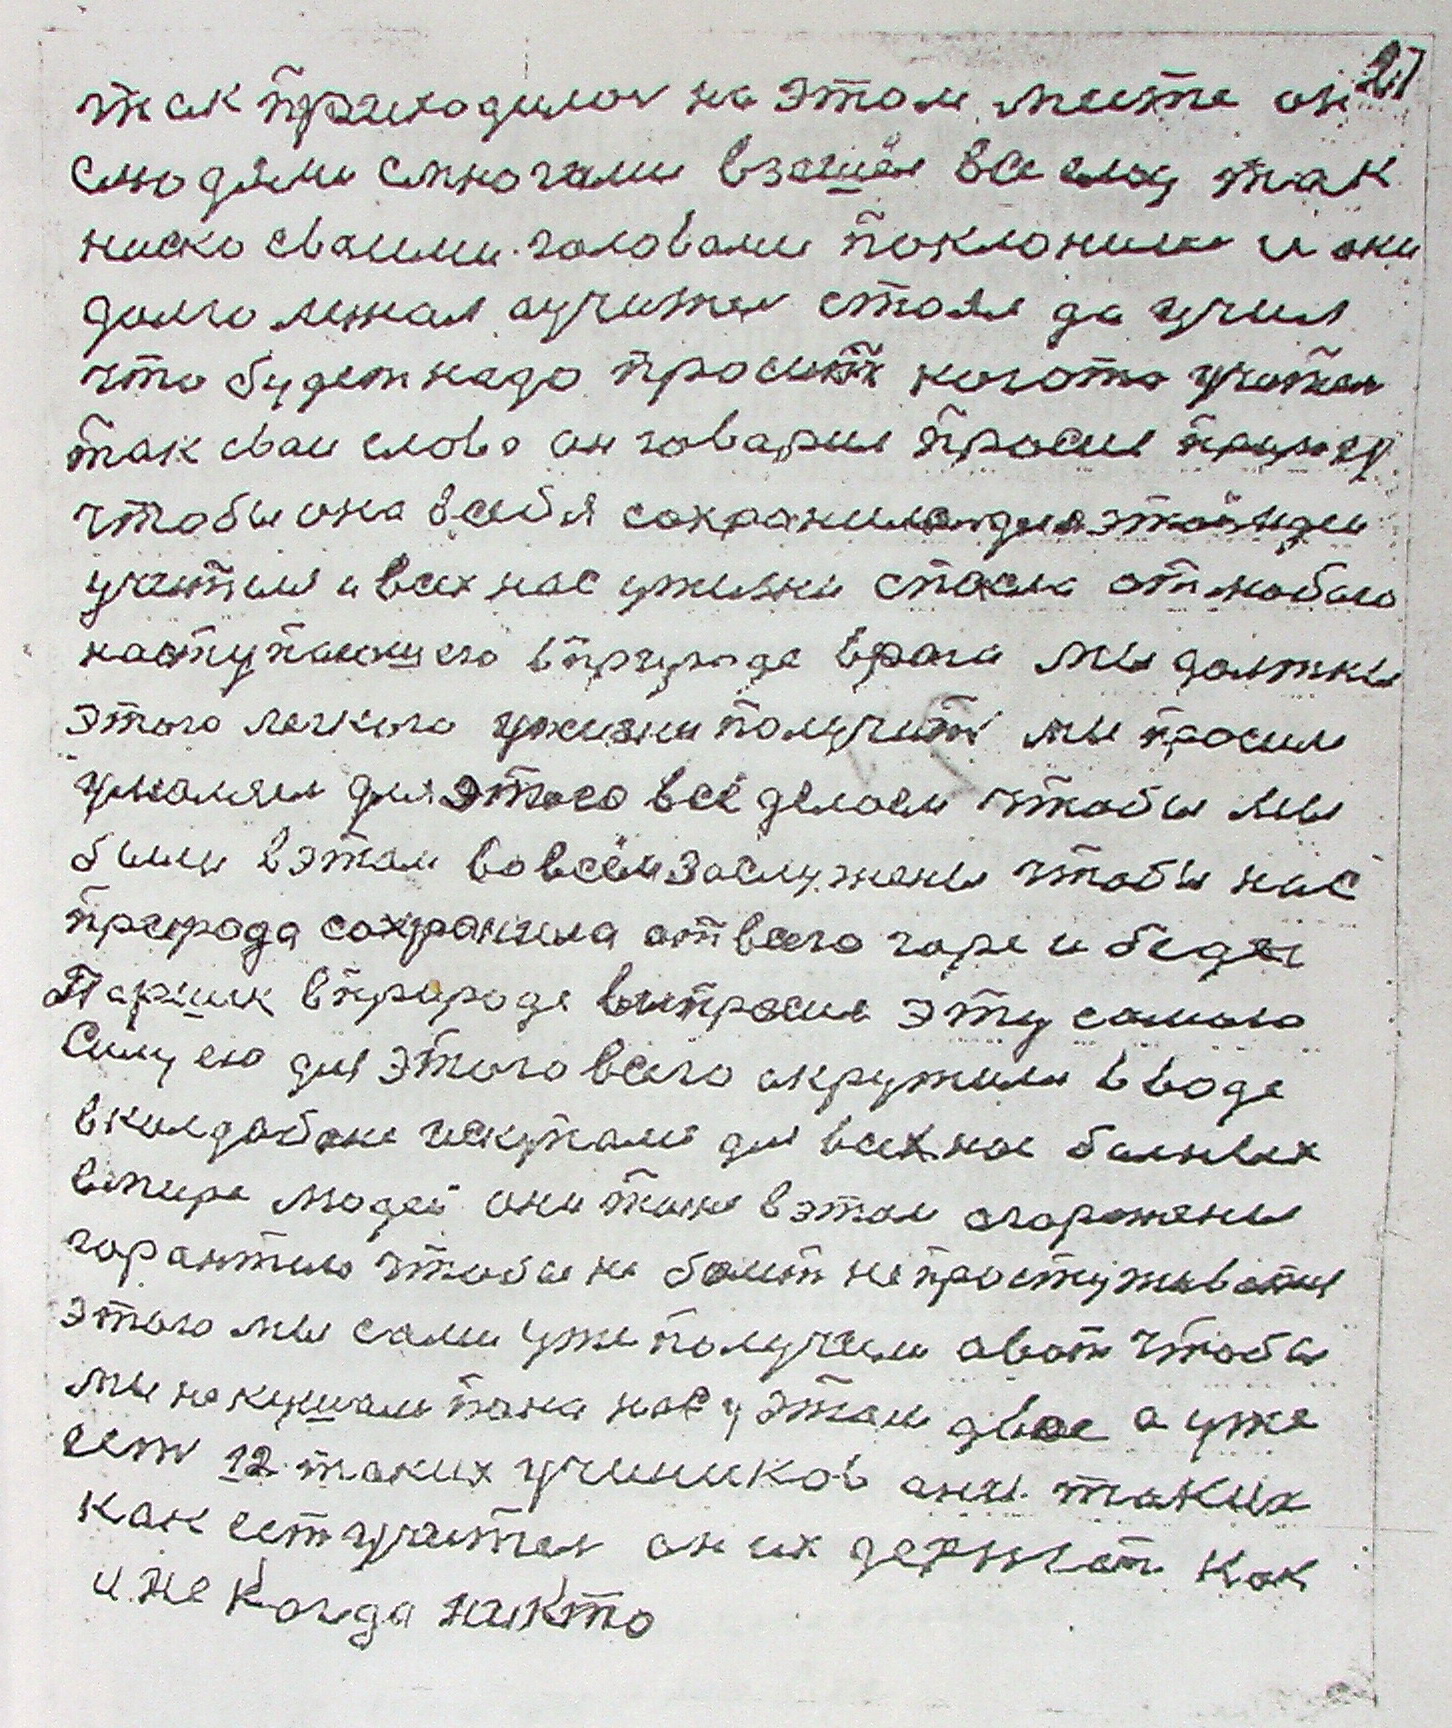 27
так приходилос на этом месте он
слюдями смногами взошёл все ему так
ниско сваими головами поклонились и они
долго лежал аучител стоял да учил
что будет надо просит когото учител
так сваи слова он говарил просил природу
чтобы она всебя сохранила для этой идеи
учителя и всех нас ужизни спасла от любого
наступающего вприроде врага мы должны
этого легкого ужизни получит мы просим
умаляем для этого всё делаем чтобы мы
были вэтом вовсём заслужены чтобы нас
природа сохранила от всего горе и беды
Паршек вприроде выпросил эту самаю
Силу ею для этого всего окружили вводе
вколдобане искупали для всех нас бальных
вмире людей они тоже вэтом огорожены
гарантию чтобы не болит не простуживатся
этого мы сами уже получили авот чтобы
мы не кушали пака нас у этом двое а уже
ест 12 таких учиников они таких
как ест учител он их держит как
и не когда никто